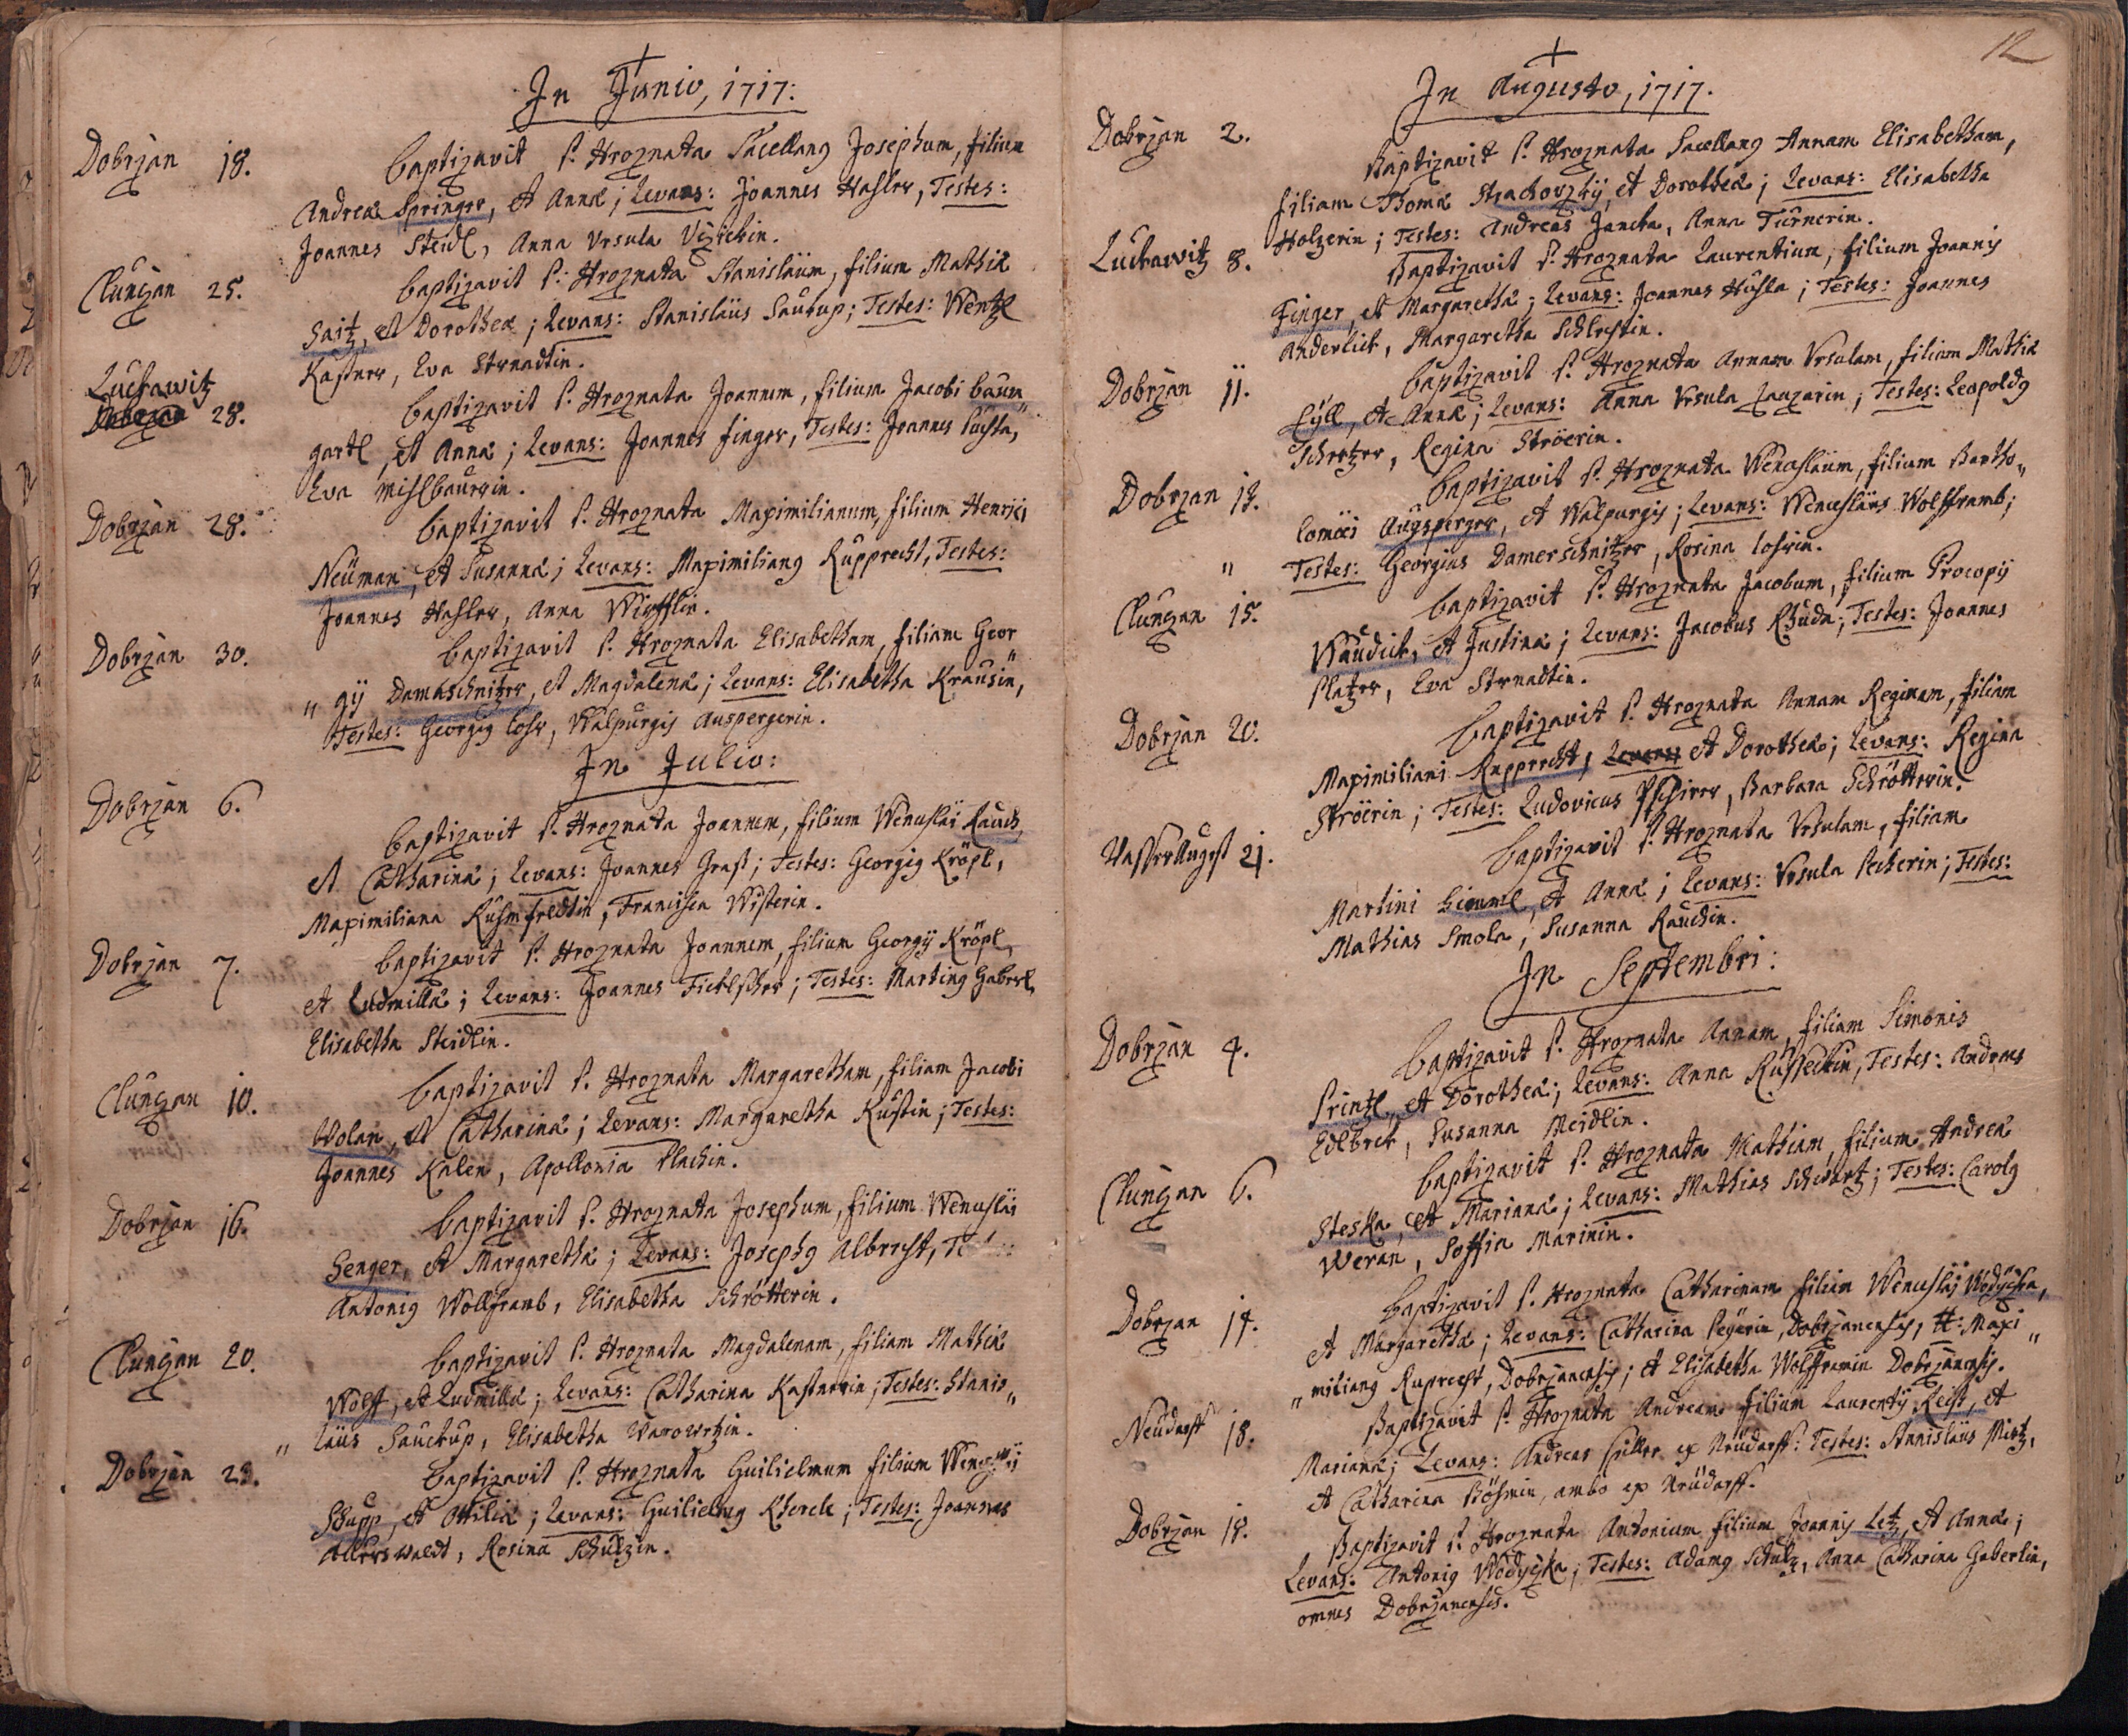 In Junio, 1717:
Dobrzan 18. baptizavit P. Hroznata Sacellang Josephum, filium
Andreæ Springer, et Annæ; Levans: Joannes Hasler, Testes:
Joannes Steidl, Anna Ursula
Clunzan 25. baptizavit P. Hroznata Stanislaüm, filium Mathiæ
Saitz, et Dorotheæ; Levans: Stanislaüs Saukup; Testes: Wentzl
Kastner, Eva Strnadtin.
Luckawitz
Dobrzan 28. baptizavit P. Hroznata Joannem, filium Jacobi baum„
gartl, et Annæ; Levans: Joannes finger, Testes: Joannes
Eva Mihlbaurin.
Dobrzan 28. baptizavit P. Hroznata Maximilianum, filium Henrici
Neüman, et Susannæ; Levans: Maximiliang Rupprecht, Testes:
Joannes Hasler, Anna
Dobrzan 30. baptizavit P. Hroznata Elisabetham, filiam Geor„
„gij Damaschnitzer, et Magdalenæ; Levans: Elisabetha Krausin,
Testes: Georgig losr, Walpurgis Auspergerin.
In Julio:
Dobrzan 6.
baptizavit P. Hroznata Joannem, filium Wenceslai Rauch,
et Catharinæ; Levans: Joannes Grass; Testes: Georgig Kröpl,
Maximiliana Francisca Wisterin.
Dobrzan 7. baptizavit P. Hroznata Joannem, filium Georgij Kröpl,
et Ludmillæ; Levans: Joannes Testes: Marting Gaberl,
Elisabetha Steidlin.
Clunzan 10. baptizavit P. Hroznata Margaretham, filiam Jacobi
Wolan, et Catharinæ; Levans: Margaretha Kustin; Testes:
Joannes Kalen, Apollonia Plachin.
Dobrzan 16. baptizavit P. Hroznata Josephum, filium Wenceslai
Senger, et Margarethæ; Levans: Josephg Albrecht,
Antonig Wollframb, Elisabetha Schrötterin.
Clunzan 20. baptizavit P. Hroznata Magdalenam, filiam Mathiæ
Wolff, et Ludmillæ; Levans: Catharina Kastnerin; Testes: Stanis„
„laüs Sauckup, Elisabetha
Dobrzan 23. baptizavit P. Hroznata Guilielmum filium
Schupp, et Ottiliæ; Levans: Guilielmg Testes: Joannes
Allerswaldt, Rosina Schultzin.
12
In Augusto, 1717.
Dobrzan 2. Baptizavit P. Hroznata Sacellang Annam Elisabetham,
filiam Thomæ et Dorotheæ; Levans: Elisabetha
Holzerin; Testes: Andreas Janeka, Anna Turnerin.
Luckawitz 8. Baptizavit P. Hroznata Laurentium, filium Joannis
Finger, et Margarethæ; Levans: Joannes Testes: Joannes
Anderlick, Margaretha
Dobrzan 11. baptizavit P. Hroznata Annam Ursulam, filiam Mathiæ
et Annæ; Levans: Anna Ursula Testes: Leopoldg
Regina Ströerin.
Dobrzan 13. baptizavit P. Hroznata Wenceslaüm, filium Bartho„
lomæi Augsperger, et Walpurgis; Levans: Wenceslaüs Wolfframb;
„ Testes: Georgius Damerschnitzer, Rosina losrin.
Clunzan 15. baptizavit P. Hroznata Jacobum, filium Procopij
Waudick, et Justinæ; Levans: Jacobus Testes: Joannes
Platzer, Eva Strnadtin.
Dobrzan 20. baptizavit P. Hroznata Annam Reginam, filiam
Maximiliani Rupprecht, Levans et Dorotheæ; Levans: Regina
Ströerin; Testes: Ludovicus Barbara Schrötterin.
21. baptizavit P. Hroznata Ursulam, filiam
Martini Himml, et Annæ; Levans: Ursula Pecherin; Testes:
Mathias Smola, Susanna Rauchin.
In Septembri:
Dobrzan 4. baptizavit P. Hroznata Annam, filiam Simonis
Printzl, et Dorotheæ; Levans: Anna Testes: Andreas
Edlbeck, Susanna Meidlin.
Clunzan 6. baptizavit P. Hroznata Mathiam, filium Andreæ
Steska, et Marianæ; Levans: Mathias Schwartz; Testes: Carolg
Weran, Soffia Marinin.
Dobrzan 14. baptizavit P. Hroznata Catharinam filiam Wenceslaij Wodyčka,
et Margarethæ; Levans: Catharina Dobrzanensis, H: Maxi„
„miliang Ruprecht, Dobrzanensis; et Elisabetha Wolfframin Dobrzanensis.
Neudorff 18. Baptizavit P. Hroznata Andream filium Laurentij et
Marianæ; Levans: Andreas ex Neüdorff: Testes: Stanislaüs
et Catharina Böhmin, ambo ex Neüdorff.
Dobrzan 18. Baptizavit P. Hroznata Antonium filium Joannis Letz, et Annæ;
Levans: Antonig Wodyčka; Testes: Adamg Schultz, Anna Catharina Gaberlin,
omnes Dobrzanenses.